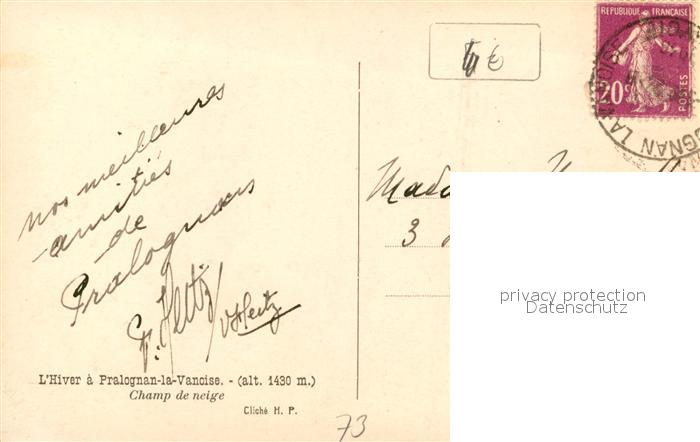 REPUBLIQUE FRANCAISE
20c
POSTES
GNAN LA
nos meilleures
amitiés
de
Pralognan
VHertz
3
privacy protection
Datenschutz
L'Hiver à Pralognan-la-Vanoise. - (alt. 1430 m.)
Champ de neige
Cliché H. P.
73